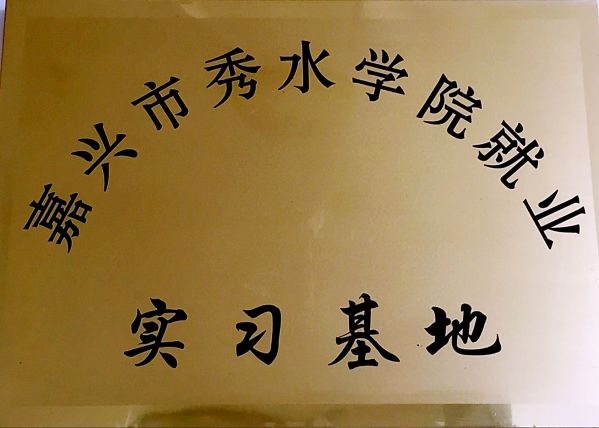 嘉兴市秀水学院就业
实习基地